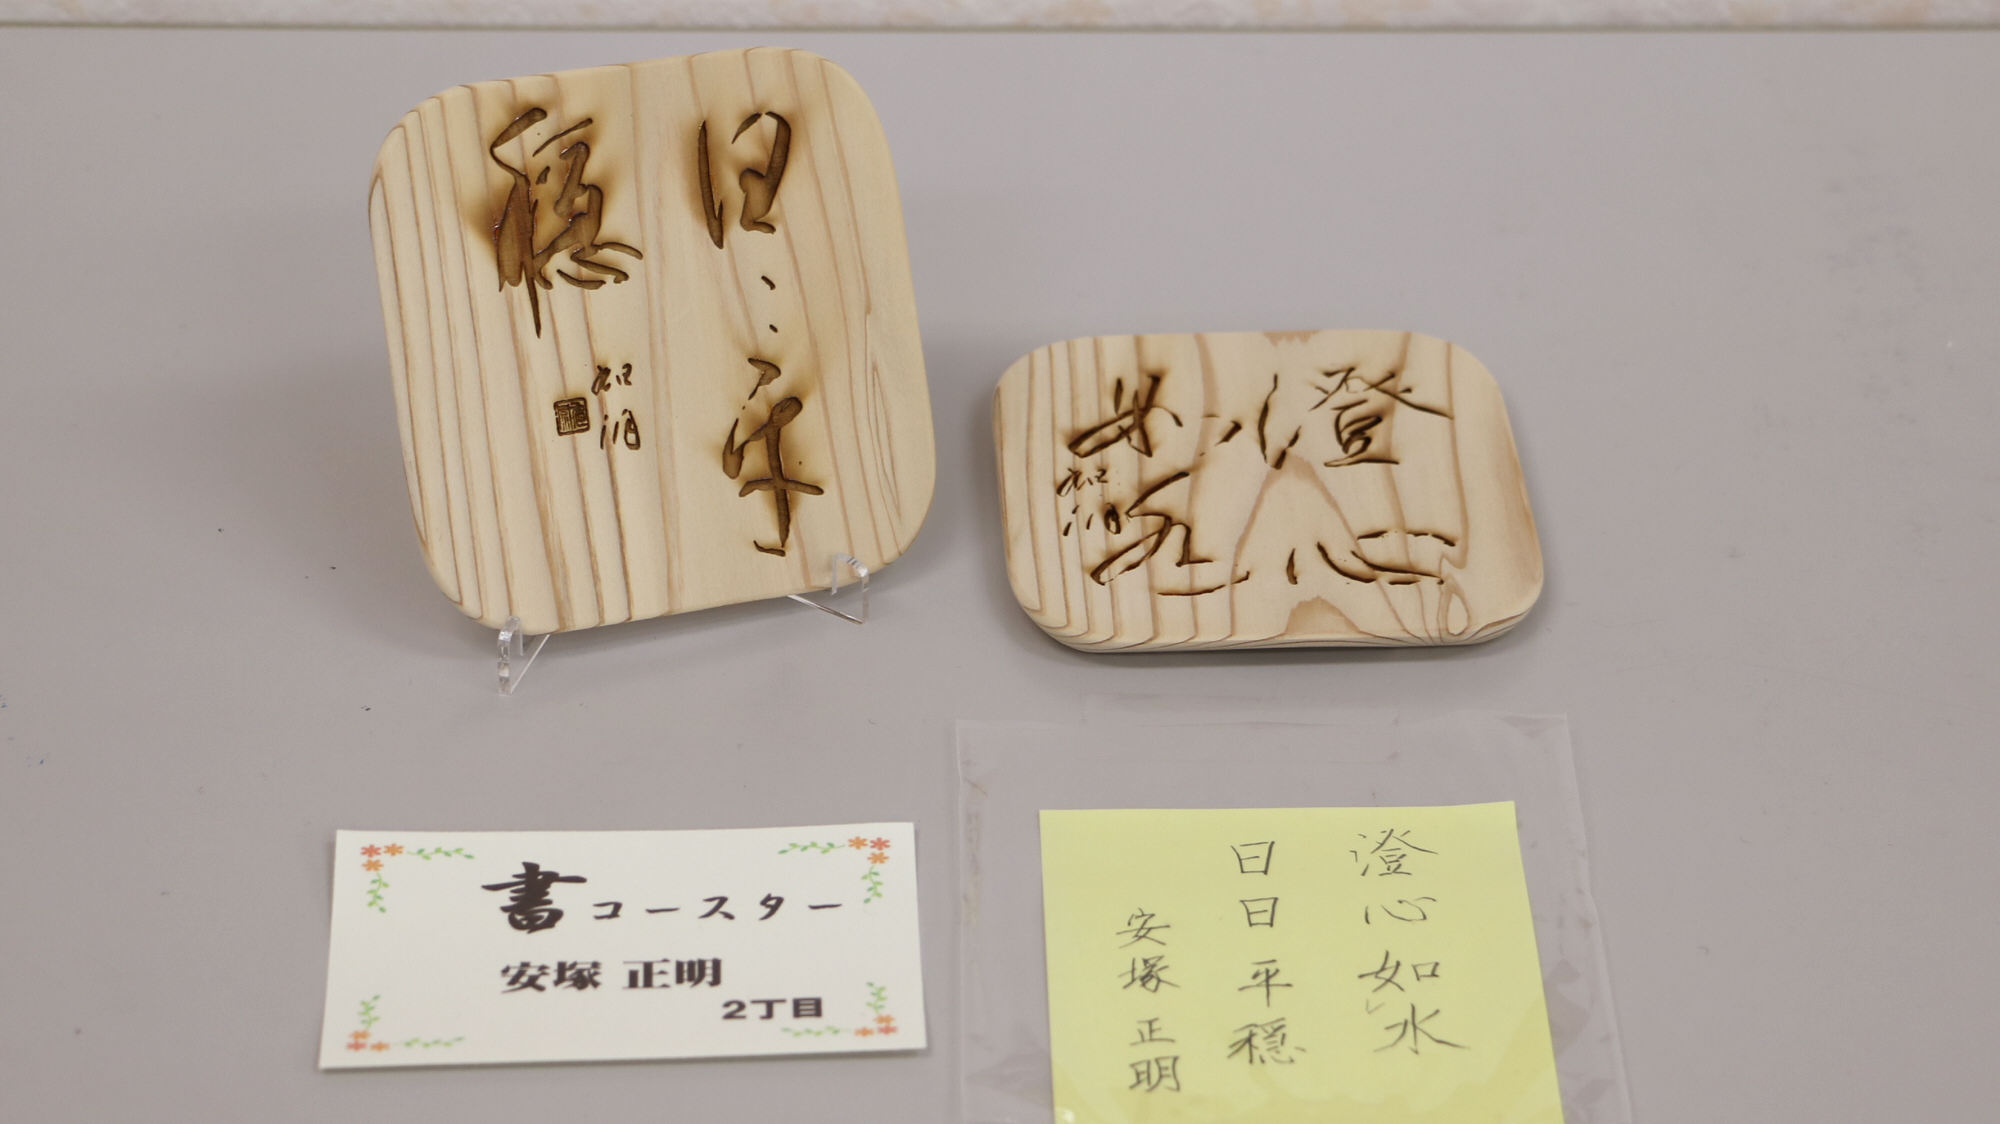 日〻平
穏
澄心
如水
書コースター
安塚 正明
2丁目
澄心如レ水
日日平穏
安塚正明